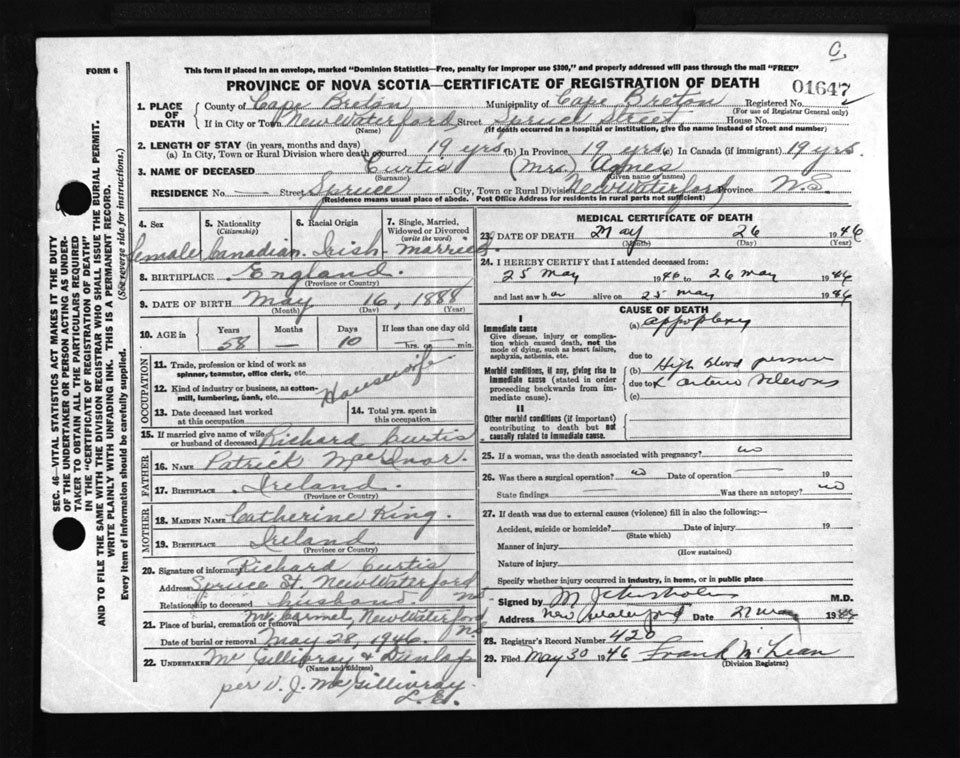 C.
FORM 6
This form if placed in an envelope, marked "Dominion Statistics—Free, penalty for improper use $300," and properly addressed will pass through the mail "FREE"
PROVINCE OF NOVA SCOTIA—CERTIFICATE OF REGISTRATION OF DEATH
01647
1. PLACE OF DEATH County of Cape Breton Municipality of Cape Breton Registered No.
(For use of Registrar General only)
If in City or Town New Waterford Street Spruce Street House No.
(Name) (If death occurred in a hospital or institution, give the name instead of street and number)
2. LENGTH OF STAY (in years, months and days)
(a) In City, Town or Rural Division where death occurred 19 yrs. (b) In Province 19 yrs (c) In Canada (if immigrant) 19 yrs.
3. NAME OF DECEASED Curtis (Mrs.) Agnes
(Surname) (Given name or names)
RESIDENCE No. — Street Spruce City, Town or Rural Division New Waterford Province N.S.
(Residence means usual place of abode. Post Office Address for residents in rural parts not sufficient)
SEC. 46—VITAL STATISTICS ACT MAKES IT THE DUTY
OF THE UNDERTAKER OR PERSON ACTING AS UNDER-
TAKER TO OBTAIN ALL THE PARTICULARS REQUIRED
IN THE "CERTIFICATE OF REGISTRATION OF DEATH"
AND TO FILE THE SAME WITH THE DIVISION REGISTRAR WHO SHALL ISSUE THE BURIAL PERMIT.
WRITE PLAINLY WITH UNFADING INK. THIS IS A PERMANENT RECORD.
Every item of information should be carefully supplied. (See reverse side for instructions.)
4. Sex 5. Nationality (Citizenship) 6. Racial Origin 7. Single, Married, Widowed or Divorced (write the word)
female Canadian Irish married
8. BIRTHPLACE England.
(Province or Country)
9. DATE OF BIRTH May 16, 1888
(Month) (Day) (Year)
10. AGE in Years Months Days If less than one day old
58 — 10 hrs. or min.
OCCUPATION
11. Trade, profession or kind of work as spinner, teamster, office clerk, etc.
Housewife
12. Kind of industry or business, as cotton-mill, lumbering, bank, etc.
13. Date deceased last worked at this occupation
14. Total yrs. spent in this occupation
15. If married give name of wife or husband of deceased Richard Curtis
FATHER
16. NAME Patrick
17. BIRTHPLACE Ireland.
(Province or Country)
MOTHER
18. MAIDEN NAME Catherine King.
19. BIRTHPLACE Ireland
(Province or Country)
20. Signature of informant Richard Curtis
Address Spruce St. New Waterford N.S.
Relationship to deceased husband
21. Place of burial, cremation or removal Mt Carmel, New Waterford N.S.
Date of burial or removal May 28, 1946.
22. UNDERTAKER McGillivray & Dunlap
(Name and Address)
per V. J. McGillivray
MEDICAL CERTIFICATE OF DEATH
23. DATE OF DEATH May 26 1946
(Month) (Day) (Year)
24. I HEREBY CERTIFY that I attended deceased from:
25 May 1946 to 26 May 1946
and last saw her alive on 25 May 1946
CAUSE OF DEATH
I
Immediate cause
Give disease, injury or complication which caused death, not the mode of dying, such as heart failure, asphyxia, asthenia, etc.
(a) Appoplexy
due to
Morbid conditions, if any, giving rise to immediate cause (stated in order proceeding backwards from immediate cause).
(b) High blood pressure
due to & arterio sclerosis
(c)
II
Other morbid conditions (if important) contributing to death but not causally related to immediate cause.
25. If a woman, was the death associated with pregnancy? no
26. Was there a surgical operation? no Date of operation 19
State findings Was there an autopsy? no
27. If death was due to external causes (violence) fill in also the following:—
Accident, suicide or homicide? Date of injury 19
(State which)
Manner of injury
(How sustained)
Nature of injury
Specify whether injury occurred in industry, in home, or in public place
Signed by M.D.
Address New Waterford Date 27 May 1946
28. Registrar's Record Number 420
29. Filed May 30 1946 Frank McLean
(Division Registrar)